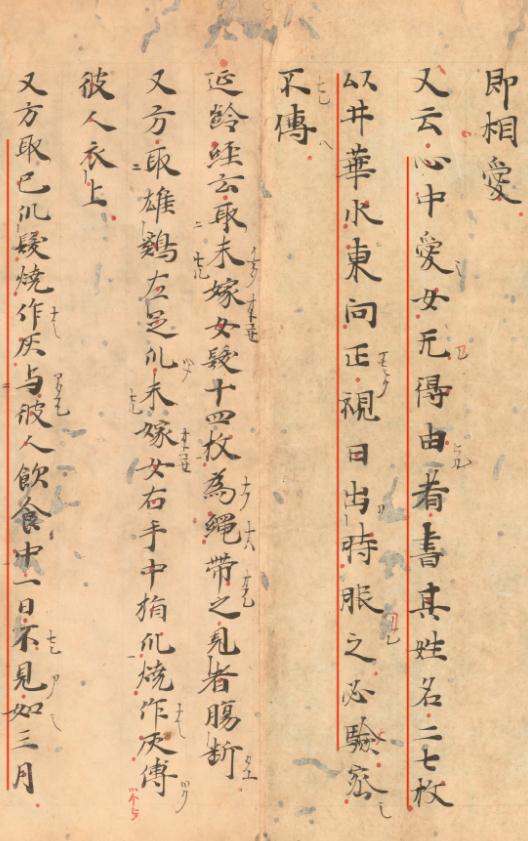 即相愛
又云心中愛女无得由者書其姓名二七枚
以井華水東向正視日出時服之必驗密
不傳
延齡經云取未嫁女髮十四枚為繩帶之見者腸斷
又方取雄鷄左足爪未嫁女右手中指爪燒作灰傅
彼人衣上
又方取己爪髮燒作灰与彼人飲食中一日不見如三月